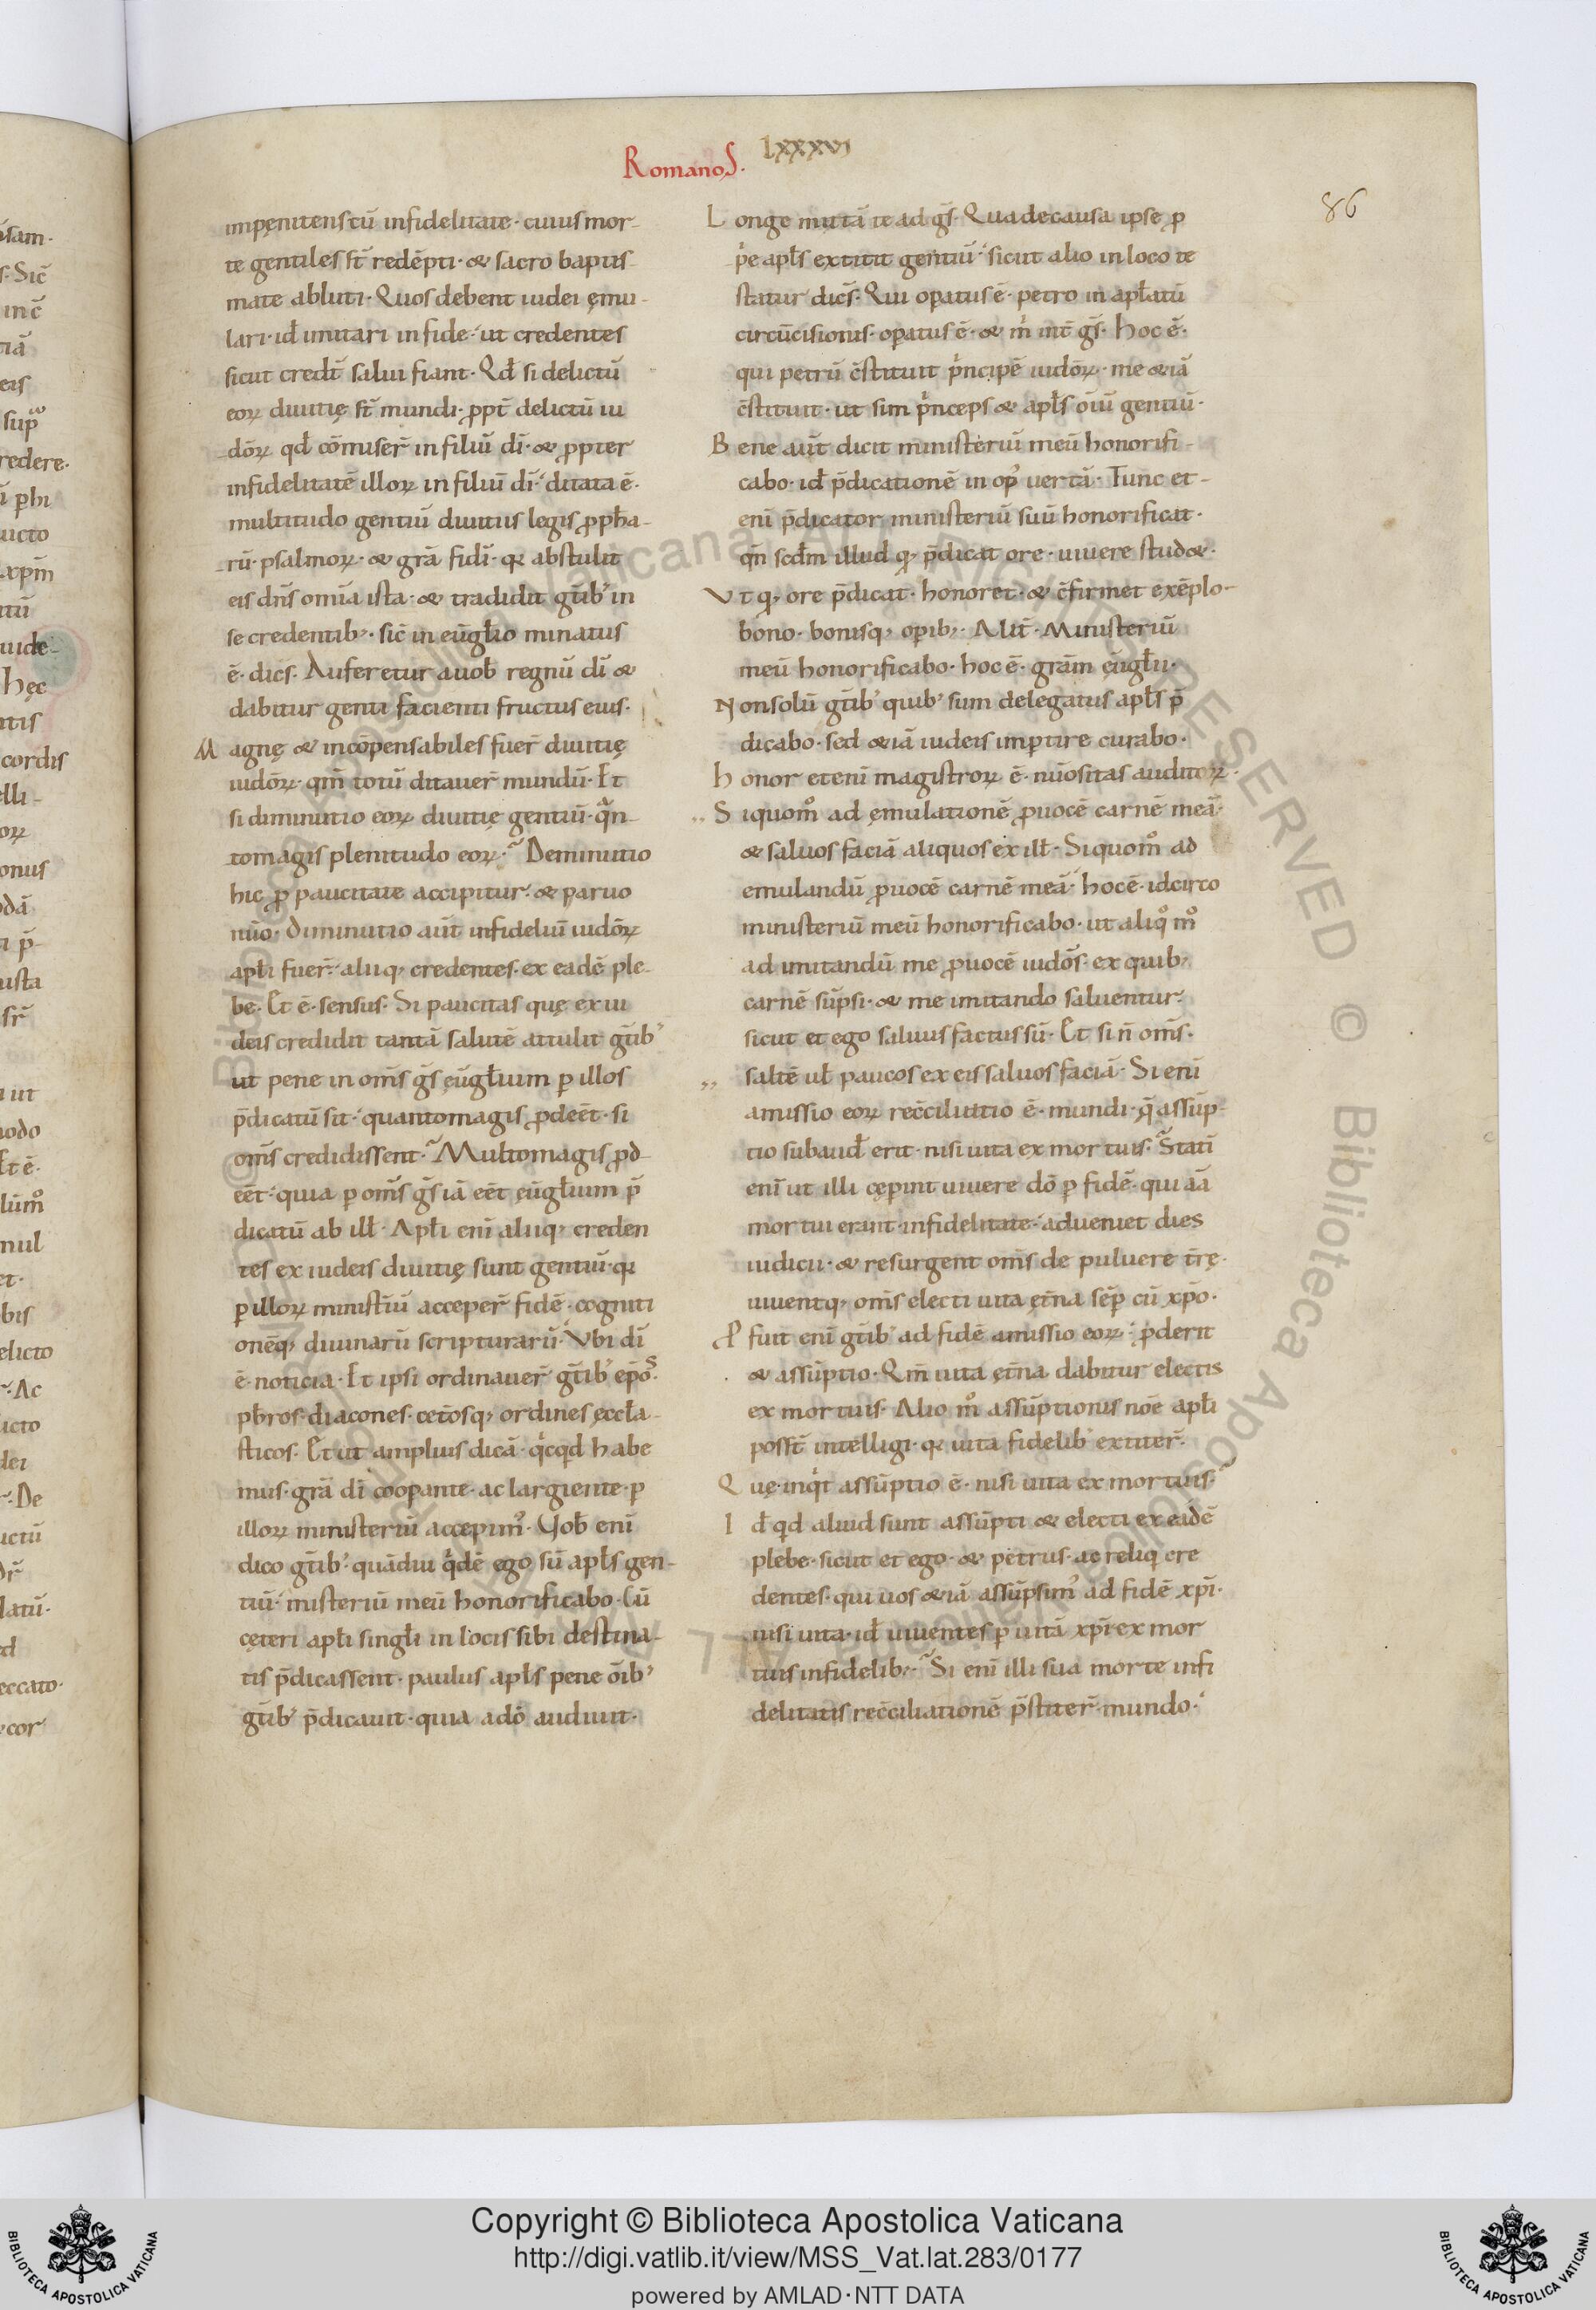 RomanoS. lxxxvi
86
impęnitens tū infidelitate· cuius mor-
te gentiles st̄ redēpti· & sacro baptis-
mate abluti· Quos debent iudei ęmu-
lari· id̄ imitari in fide· ut credentes
sicut credt̄ salui fiant· Qd̄ si delictū
eoꝝ diuitię st̄ mundi· ꝓpt̄ delictū iu
dōꝝ qd̄ cōmiser̄ in filiū dī· & ꝓpter
infidelitatē illoꝝ in filiū dī· ditata ē·
multitudo gentiū diuitiis legis ꝓpha-
rū· psalmoꝝ· & grā fidī· qꝛ abstulit
eis dn̄s om̄ia ista· & tradidit gt̄ib' in
se credentib;· sic̄ in eūgl̄io minatus
ē· dic̄s· Auferetur a uob̄ regnū dī &
dabitur genti facienti fructus eius·
Magnę & incōpensabiles fuer̄ diuitię
iudōꝝ· qm̄ totū ditauer̄ mundū· Et
si diminutio eoꝝ diuitię gentiū· qᷓn-
tomagis plenitudo eoꝝ· Deminutio
hic ꝓ paucitate accipitur· & paruo
nūo· Diminutio aūt infideliū iudōꝝ
apl̄i fuer̄· aliiq; credentes· ex eadē ple-
be· Et ē· sensus· Si paucitas quę ex iu
deis credidit tantā salutē attulit gt̄ib'
ut pene in om̄s ḡs ęūgl̄ium ꝑ illos
p̄dicatū sit· quantomagis ꝓdeēt· si
om̄s credidissent· Multomagis ꝓd-
eēt· quia ꝑ om̄s ḡs iā eēt ęūgl̄ium p̄
dicatū ab ill̄· Apl̄i enī aliiq; creden
tes ex iudeis diuitię sunt gentiū· qꝛ
ꝑ illoꝝ minist̄iū acceper̄ fidē· cogniti
onēq; diuinarū scripturarū· Vbi dī
ē· noticia· Et ipsi ordinauer̄ gt̄ib' ep̄os·
pb̄ros· diacones· cet̄osq; ordines ęccl̄a-
sticos· Et ut amplius dicā· qͥcqd̄ habe
mus· grā dī coopante· ac largiente· ꝑ
illoꝝ ministeriū accepim'· Uob̄ enī
dico gt̄ib'· quādiu qͥdē ego sū apl̄s gen-
tiū· misteriū meū honorificabo· Cū
cęteri apl̄i singl̄i in locis sibi destina-
tis p̄dicassent· paulus apl̄s pene ōib'
gt̄ib' p̄dicauit· quia a dō audiuit·
Longe mittā te ad ḡs· Qua de causa ipse ꝓ
pͥe apl̄s extitit gentiū· sicut alio in loco te
statur dic̄s· Qui opatus ē· petro in apl̄atū
circūcisionis· opatus ē· & mͥ int̄ ḡs· Hoc ē·
qui petrū c̄stituit pͥncipē iudōꝝ· me &iā
c̄stituit· ut sim pͥnceps & apl̄s ōiū gentiū·
Bene aūt dicit ministeriū meū honorifi-
cabo· id̄ p̄dicationē in op' uertā· Tunc et-
enī p̄dicator ministeriū suū honorificat·
qn̄ scd̄m illud q; p̄dicat ore· uiuere stud&·
Vt q; ore p̄dicat· honoret· & c̄firmet exēplo·
bono· bonisq; opib;· Alit̄· Ministeriū
meū honorificabo· hoc ē· grām ęūgl̄ii·
Non solū gt̄ib' quib' sum delegatus apl̄s p̄
dicabo· sed &iā iudeis impartire curabo·
Honor etenī magistroꝝ ē· nūositas auditoꝝ·
Si quom̊ ad ęmulationē ꝓuocē carnē meā·
& saluos faciā aliquos ex ill̄· Si quom̊ ad
emulandū ꝓuocē carnē meā· hoc ē· idcirco
ministeriū meū honorificabo· ut aliq̊ m̊
ad imitandū me ꝓuocē iudōs· ex quib;
carnē sūpsi· & me imitando saluentur·
sicut et ego saluus factus sū· Et si n̄ om̄s·
saltē ul̄ paucos ex eis saluos faciā· Si enī
amissio eoꝝ rec̄ciliatio ē· mundi· q̄ assūp-
tio subaud̄ erit· nisi uita ex mortuis· Stati
enī ut illi cęperint uiuere dō ꝑ fidē· qui āā
mortui erant infidelitate· adueniet dies
iudicii· & resurgent om̄s de puluere t̄rę·
uiuentq; om̄s electi uita ęt̄na sēp cū xp̄o·
Profuit enī gt̄ib' ad fidē amissio eoꝝ· ꝓderit
& assūptio· Qm̄ uita ęt̄na dabitur electis
ex mortuis· Alio m̊ assūptionis nōē apl̄i
posst̄ intelligi· qꝛ uita fidelib' extiter̄·
Quę· inqͥt assūptio ē· nisi uita ex mortuis·
Id̄ qd aliud sunt assūpti & electi ex eadē
plebe· sicut et ego· & petrus· ac reliqͥ cre
dentes· qui uos &iā assūpsim' ad fidē xp̄i·
nisi uita· id̄ uiuentes ꝑ uitā xp̄i· ex mor
tuis infidelib;· Si enī illi sua morte infi
delitatis rec̄ciliationē p̄stiter̄ mundo·
Copyright © Biblioteca Apostolica Vaticana
http://digi.vatlib.it/view/MSS_Vat.lat.283/0177
powered by AMLAD·NTT DATA